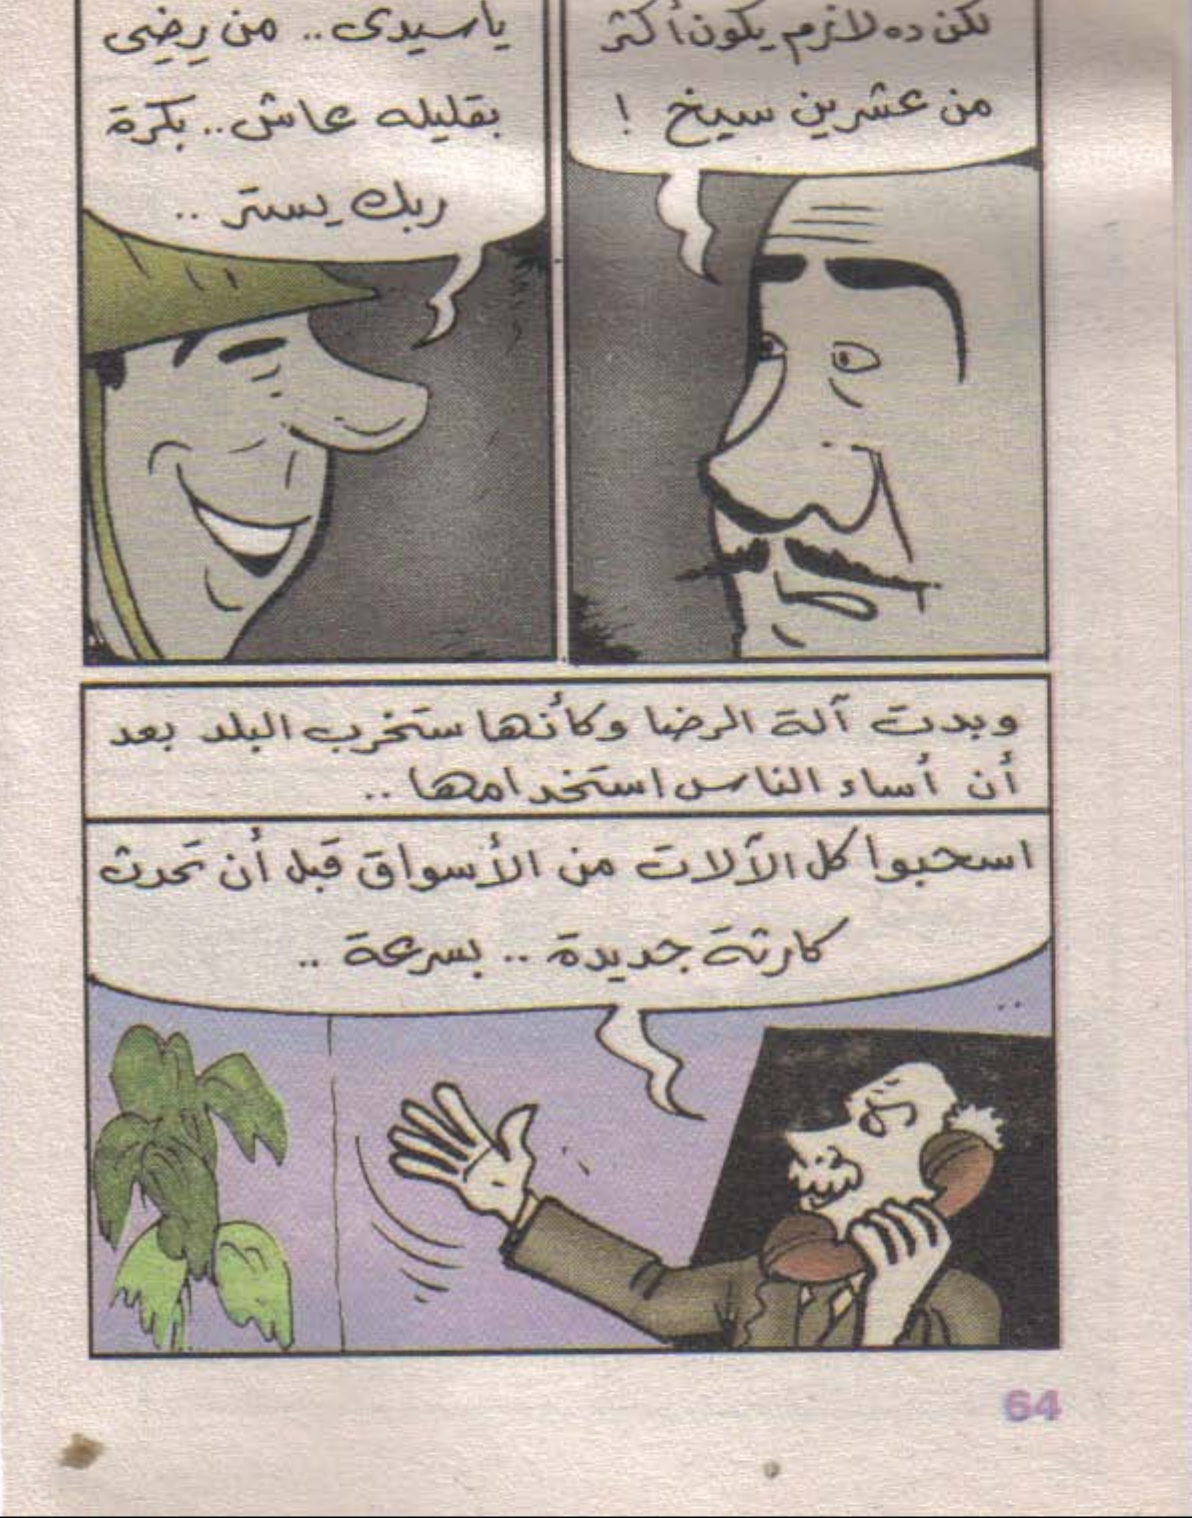 لكن ده لازم يكون أكثر
من عشرين سيخ !
ياسيدى .. من رضى
بقليله عاش .. بكرة
ربك يستر ..
وبدت آلة الرضا وكأنها ستخرب البلد بعد
أن أساء الناس استخدامها ..
اسحبوا كل الآلات من الأسواق قبل أن تحدث
كارثة جديدة .. بسرعة ..
64